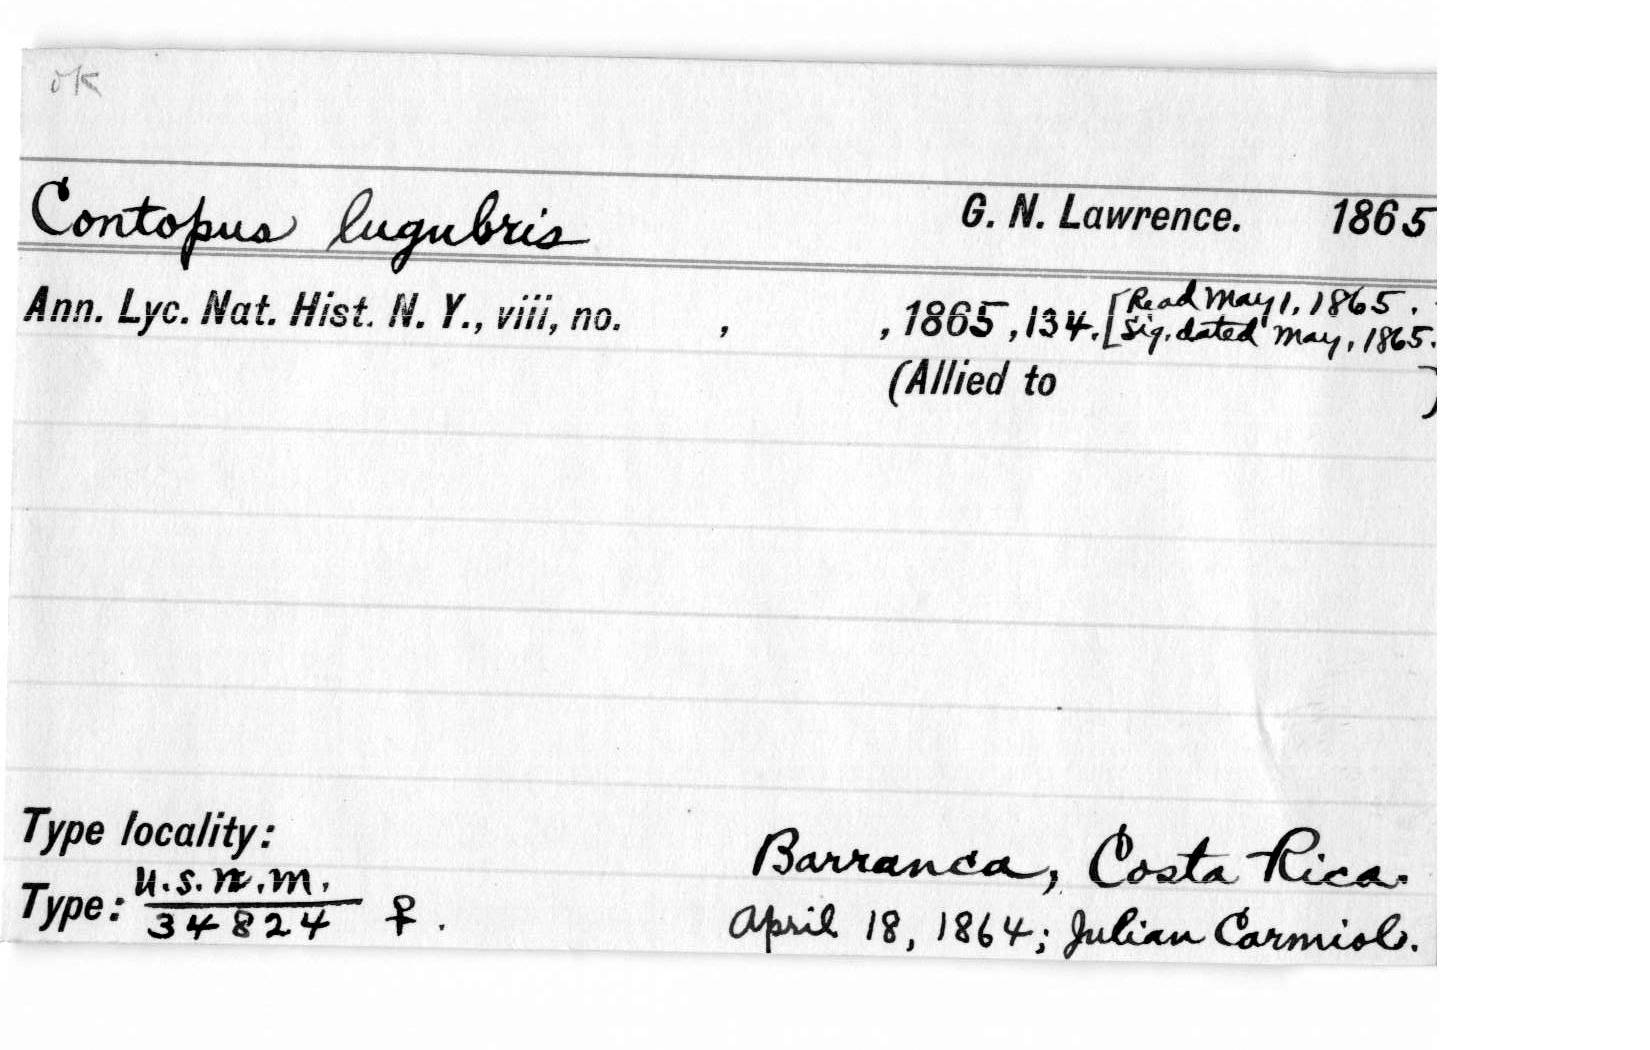 OK
Contopus lugubris G. N. Lawrence. 1865
Ann. Lyc. Nat. Hist. N. Y., viii, no. , , 1865, 134. [Read May 1, 1865.
[Sig. dated May, 1865.
(Allied to )
Type locality: Barranca, Costa Rica.
Type: U.S.N.M. 34824 ♀. April 18, 1864; Julian Carmiol.